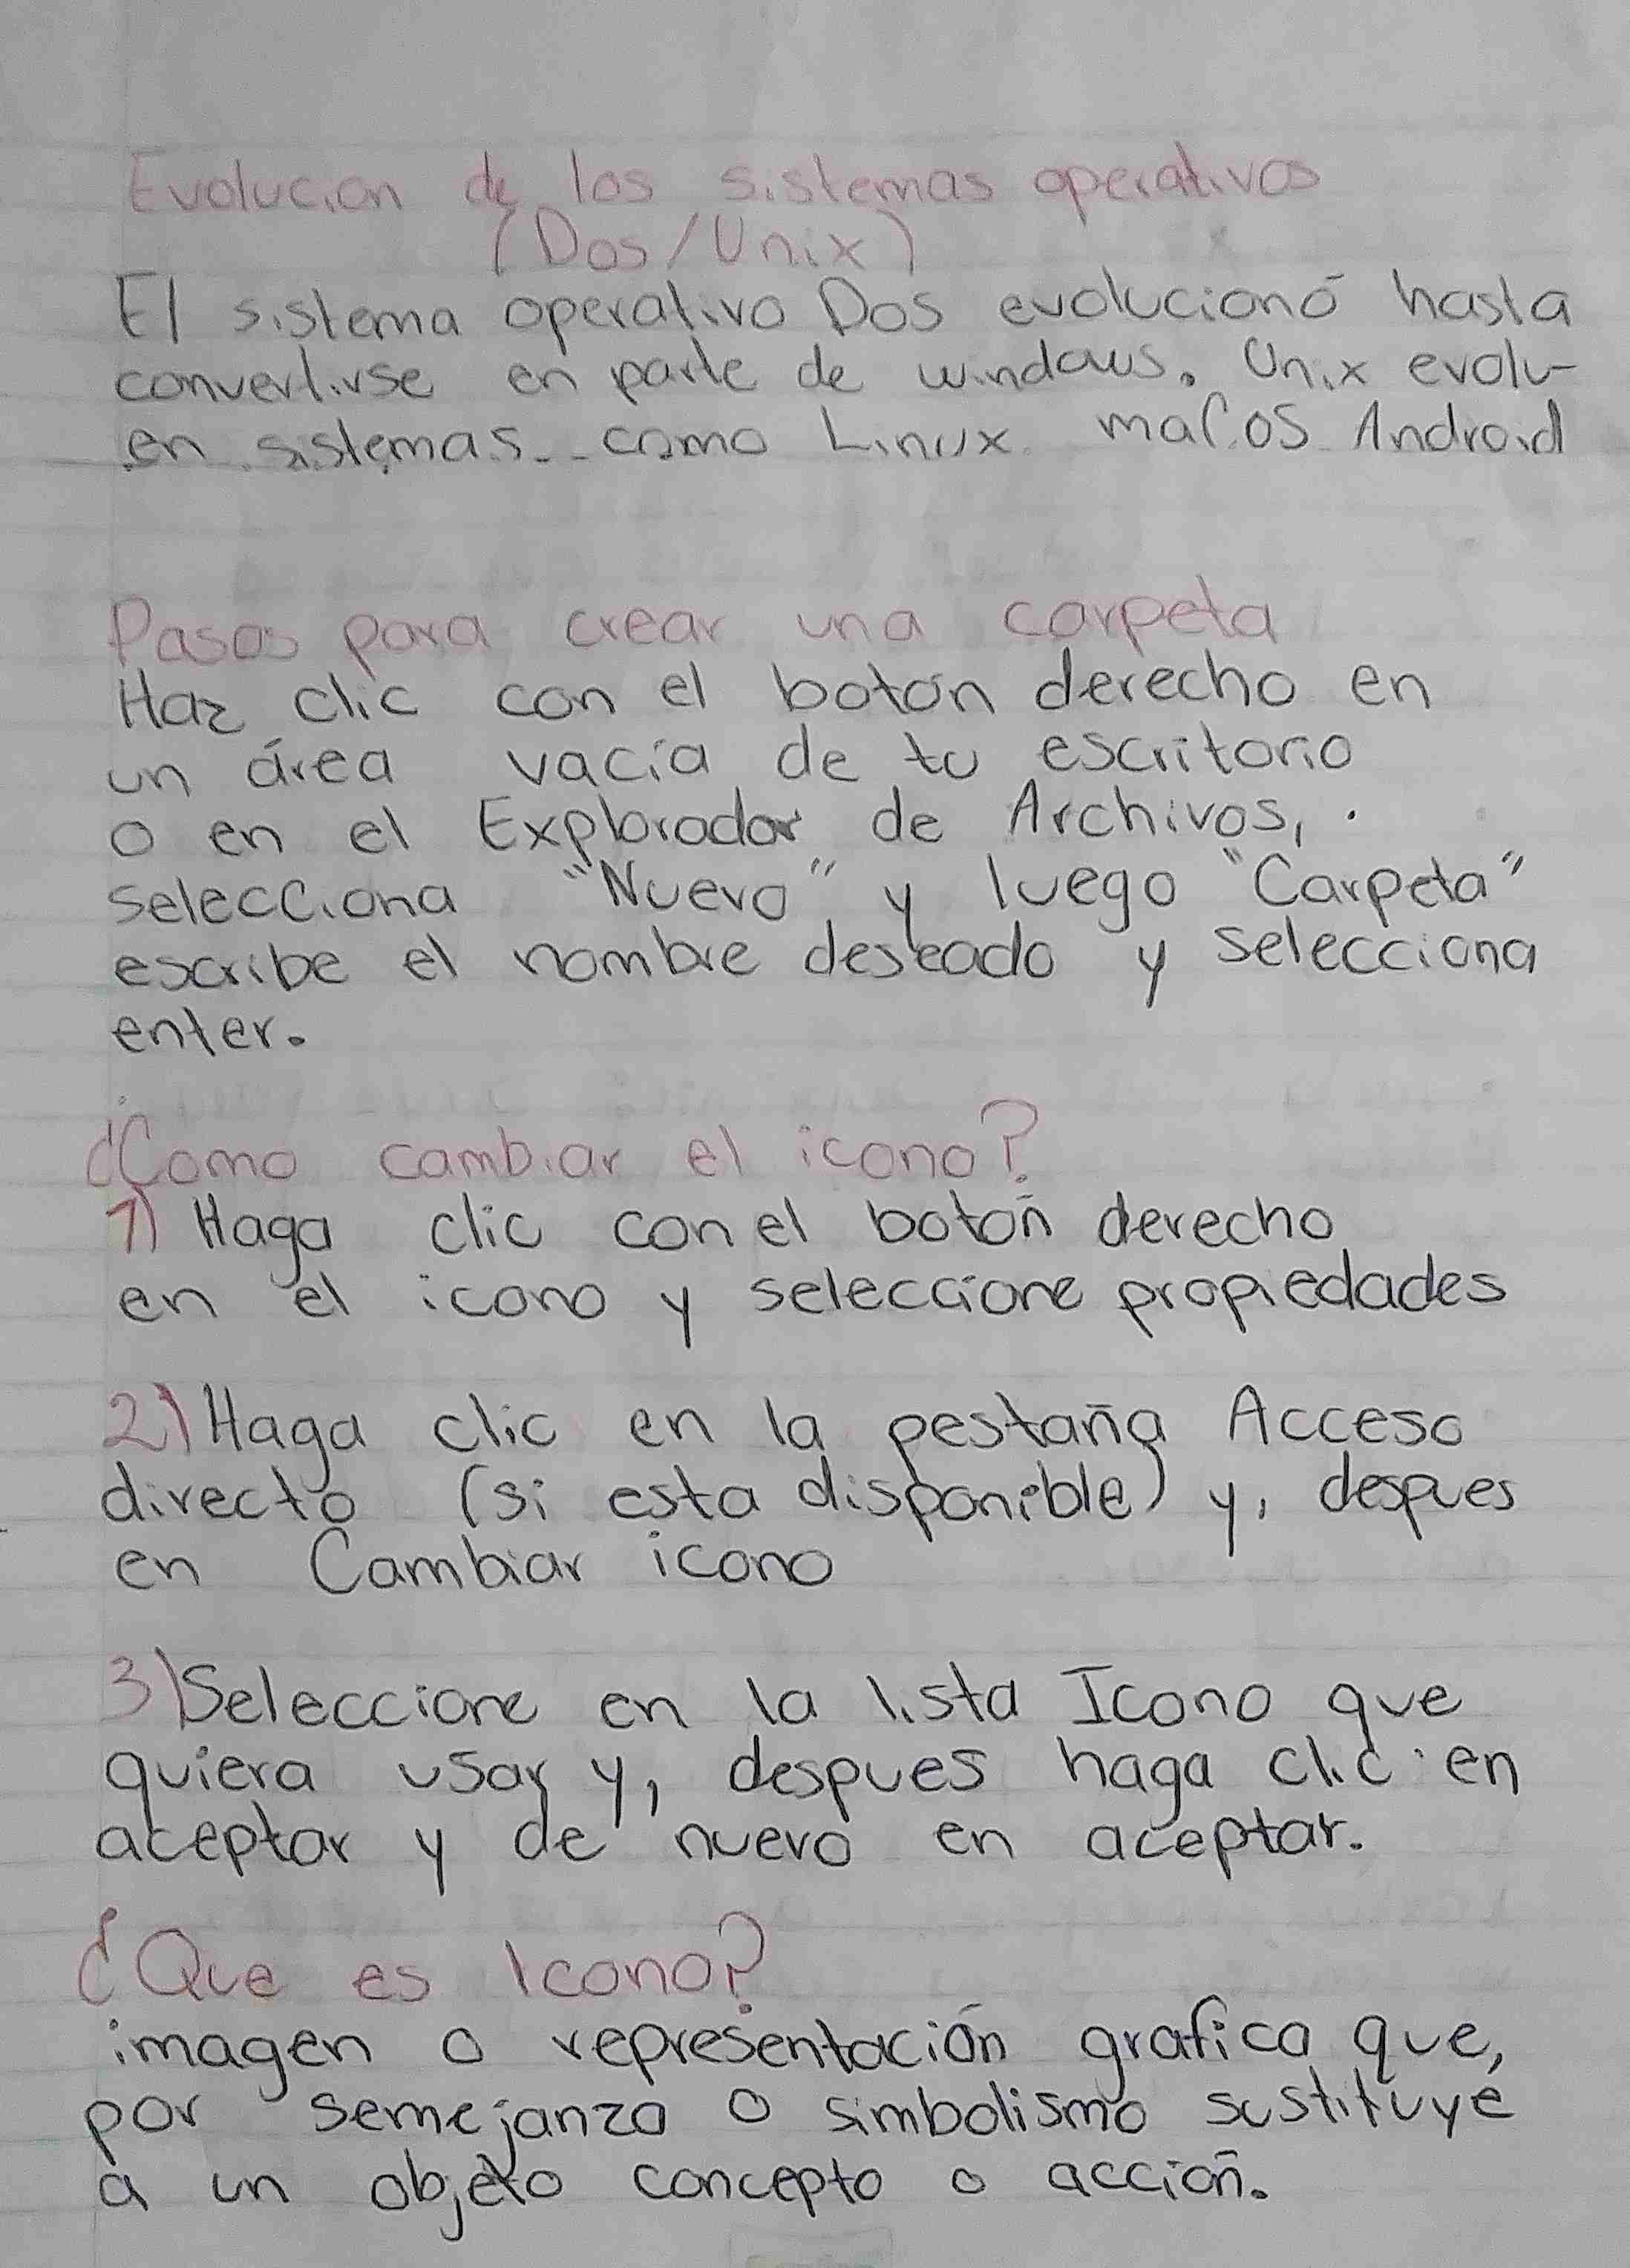 Evolucion de los sistemas operativos
(Dos/Unix)
El sistema operativo Dos evolucionó hasta
convertirse en parte de windows. Unix evolu-
en sistemas como Linux macOS Android
Pasos para crear una carpeta
Haz clic con el botón derecho en
un área vacía de tu escritorio
o en el Explorador de Archivos,
selecciona "Nuevo" y luego "Carpeta"
escribe el nombre deseado y selecciona
enter.
¿Como cambiar el icono?
1) Haga clic con el botón derecho
en el icono y seleccione propiedades
2) Haga clic en la pestaña Acceso
directo (si esta disponible) y, despues
en Cambiar icono
3) Seleccione en la lista Icono que
quiera usar y, despues haga clic en
aceptar y de nuevo en aceptar.
¿Que es Icono?
imagen o representación grafica que,
por semejanza o simbolismo sustituye
a un objeto concepto o acción.